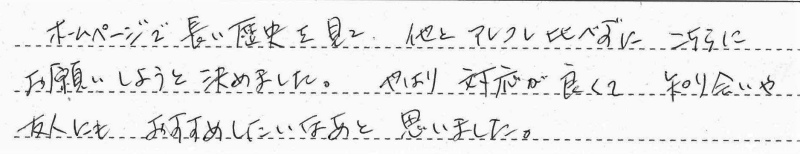 ホームページで長い歴史を見て、他とアレコレ比べずにこちらに
お願いしようと決めました。やはり対応が良くて知り合いや
友人にもおすすめしたいなあと思いました。